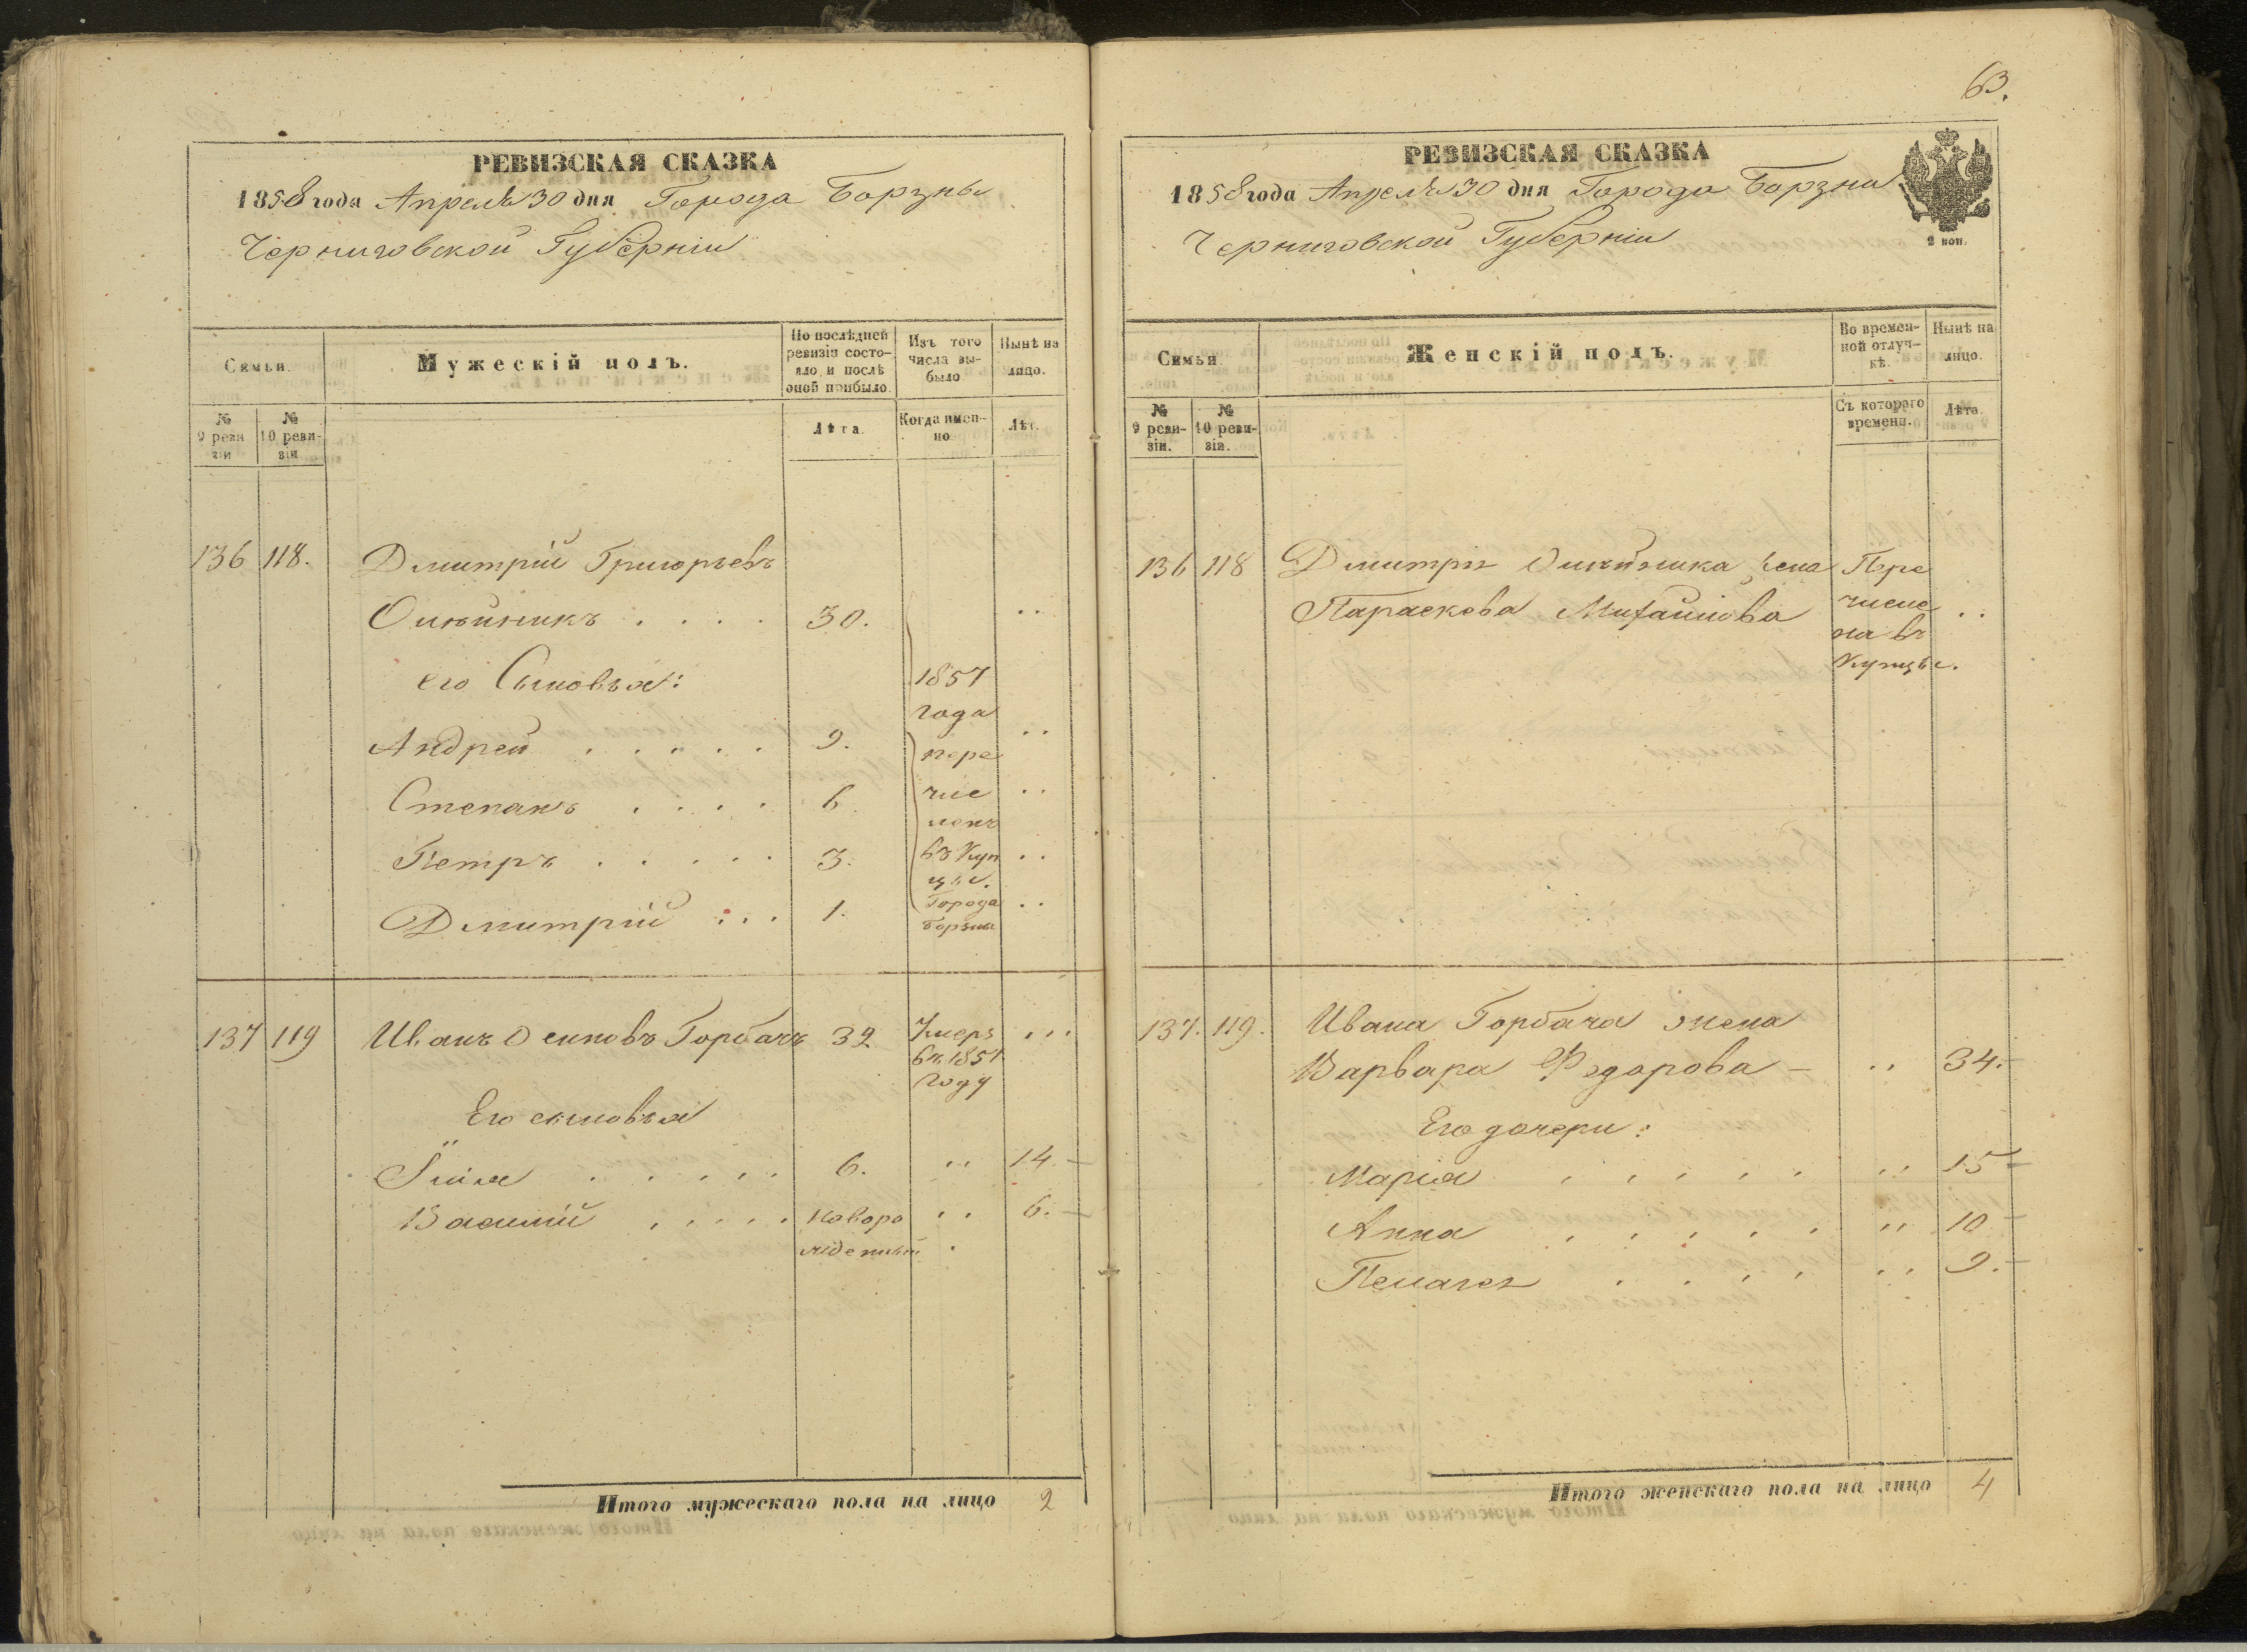 РЕВИЗСКАЯ СКАЗКА
1858 года Апрѣля 30 дня Города Борзны
Черниговской Губерніи
Семьи.
Мужескій полъ.
По послѣдней ревизіи состояло и послѣ оной прибыло.
Изъ того числа выбыло
Нынѣ на лицо.
№ 9 ревизіи
№ 10 ревизіи
Лѣта.
Когда именно
Лѣт.
136 118. Дмитрій Григорьевъ
Олѣйникъ . . . . 30. ..
его Сыновья:
Андрей . . . . . 9. ..
Степанъ . . . . 6 ..
Петръ . . . . . 3. ..
Дмитрій . . . 1. ..
1857
года
пере
чис
ленъ
въ Куп
цы.
Города
Борзны
137 119 Иванъ Осиповъ Горбачъ 32 Умеръ ...
въ 1851
году
Его сыновья
Илія . . . . . 6. .. 14. –
Василій . . . . . Новоро .. 6. –
жденный .
Итого мужескаго пола на лицо 2
63.
РЕВИЗСКАЯ СКАЗКА
1858 года Апрѣля 30 дня Города Борзны
Черниговской Губерніи
2 коп.
Семьи.
Женскій полъ.
Во временной отлучкѣ.
Нынѣ на лицо.
№ 9 ревизіи.
№ 10 ревизіи.
Съ котораго времени.
Лѣта.
136 118 Дмитрія Олѣйника жена Пере
Параскова Михайлова числе ..
на въ
Купцы.
137. 119. Ивана Горбача жена
Варвара Федорова – .. 34. –
Его дочери:
Марія . . . . . .. 15 –
Анна . . . . . .. 10 –
Пелагея . . . . .. 9. –
Итого женскаго пола на лицо 4